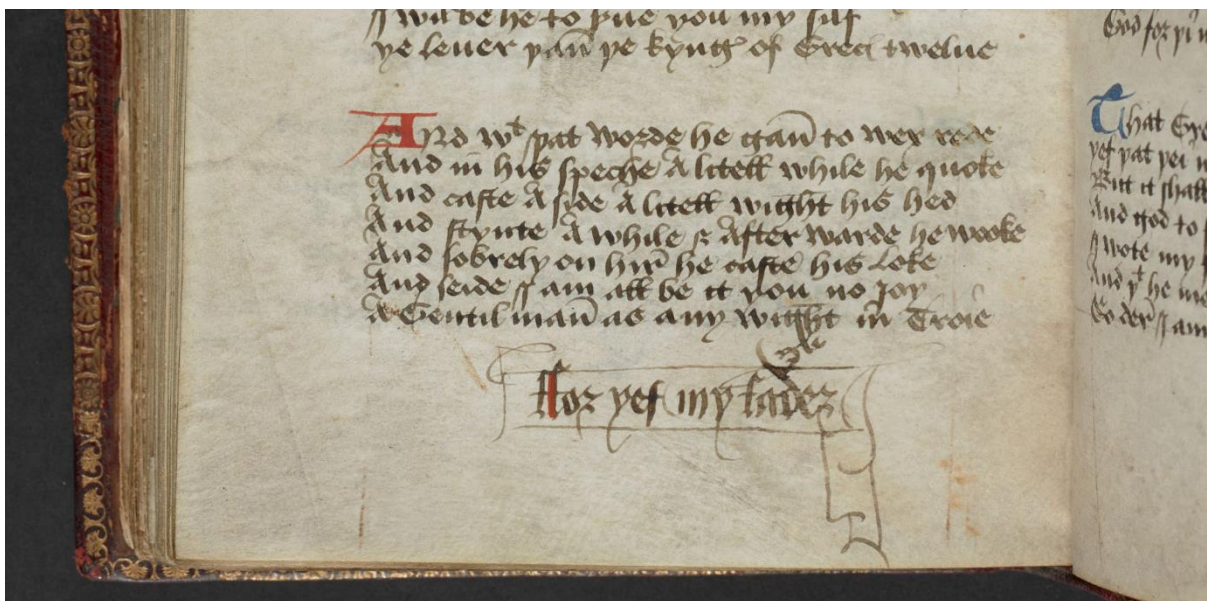 I wil be he to sue you my silf
ye leuer þan þe kyngꝭ of Grece twelue
And wᵗ þat worde he gan̄ to wex rede
And in his speche A litell while he quoke
And caste A side A litell wight his hed
And stynte A while & After warde he wooke
And sobrely on hir he caste his loke
And seide I am all be it you no Joy
A Gentil man̄ as any wight in Troie
ffor yef my fader
God for
That Gre
yet þat þei
But it shall
And god to
I wote my
And þᵗ he me
I am